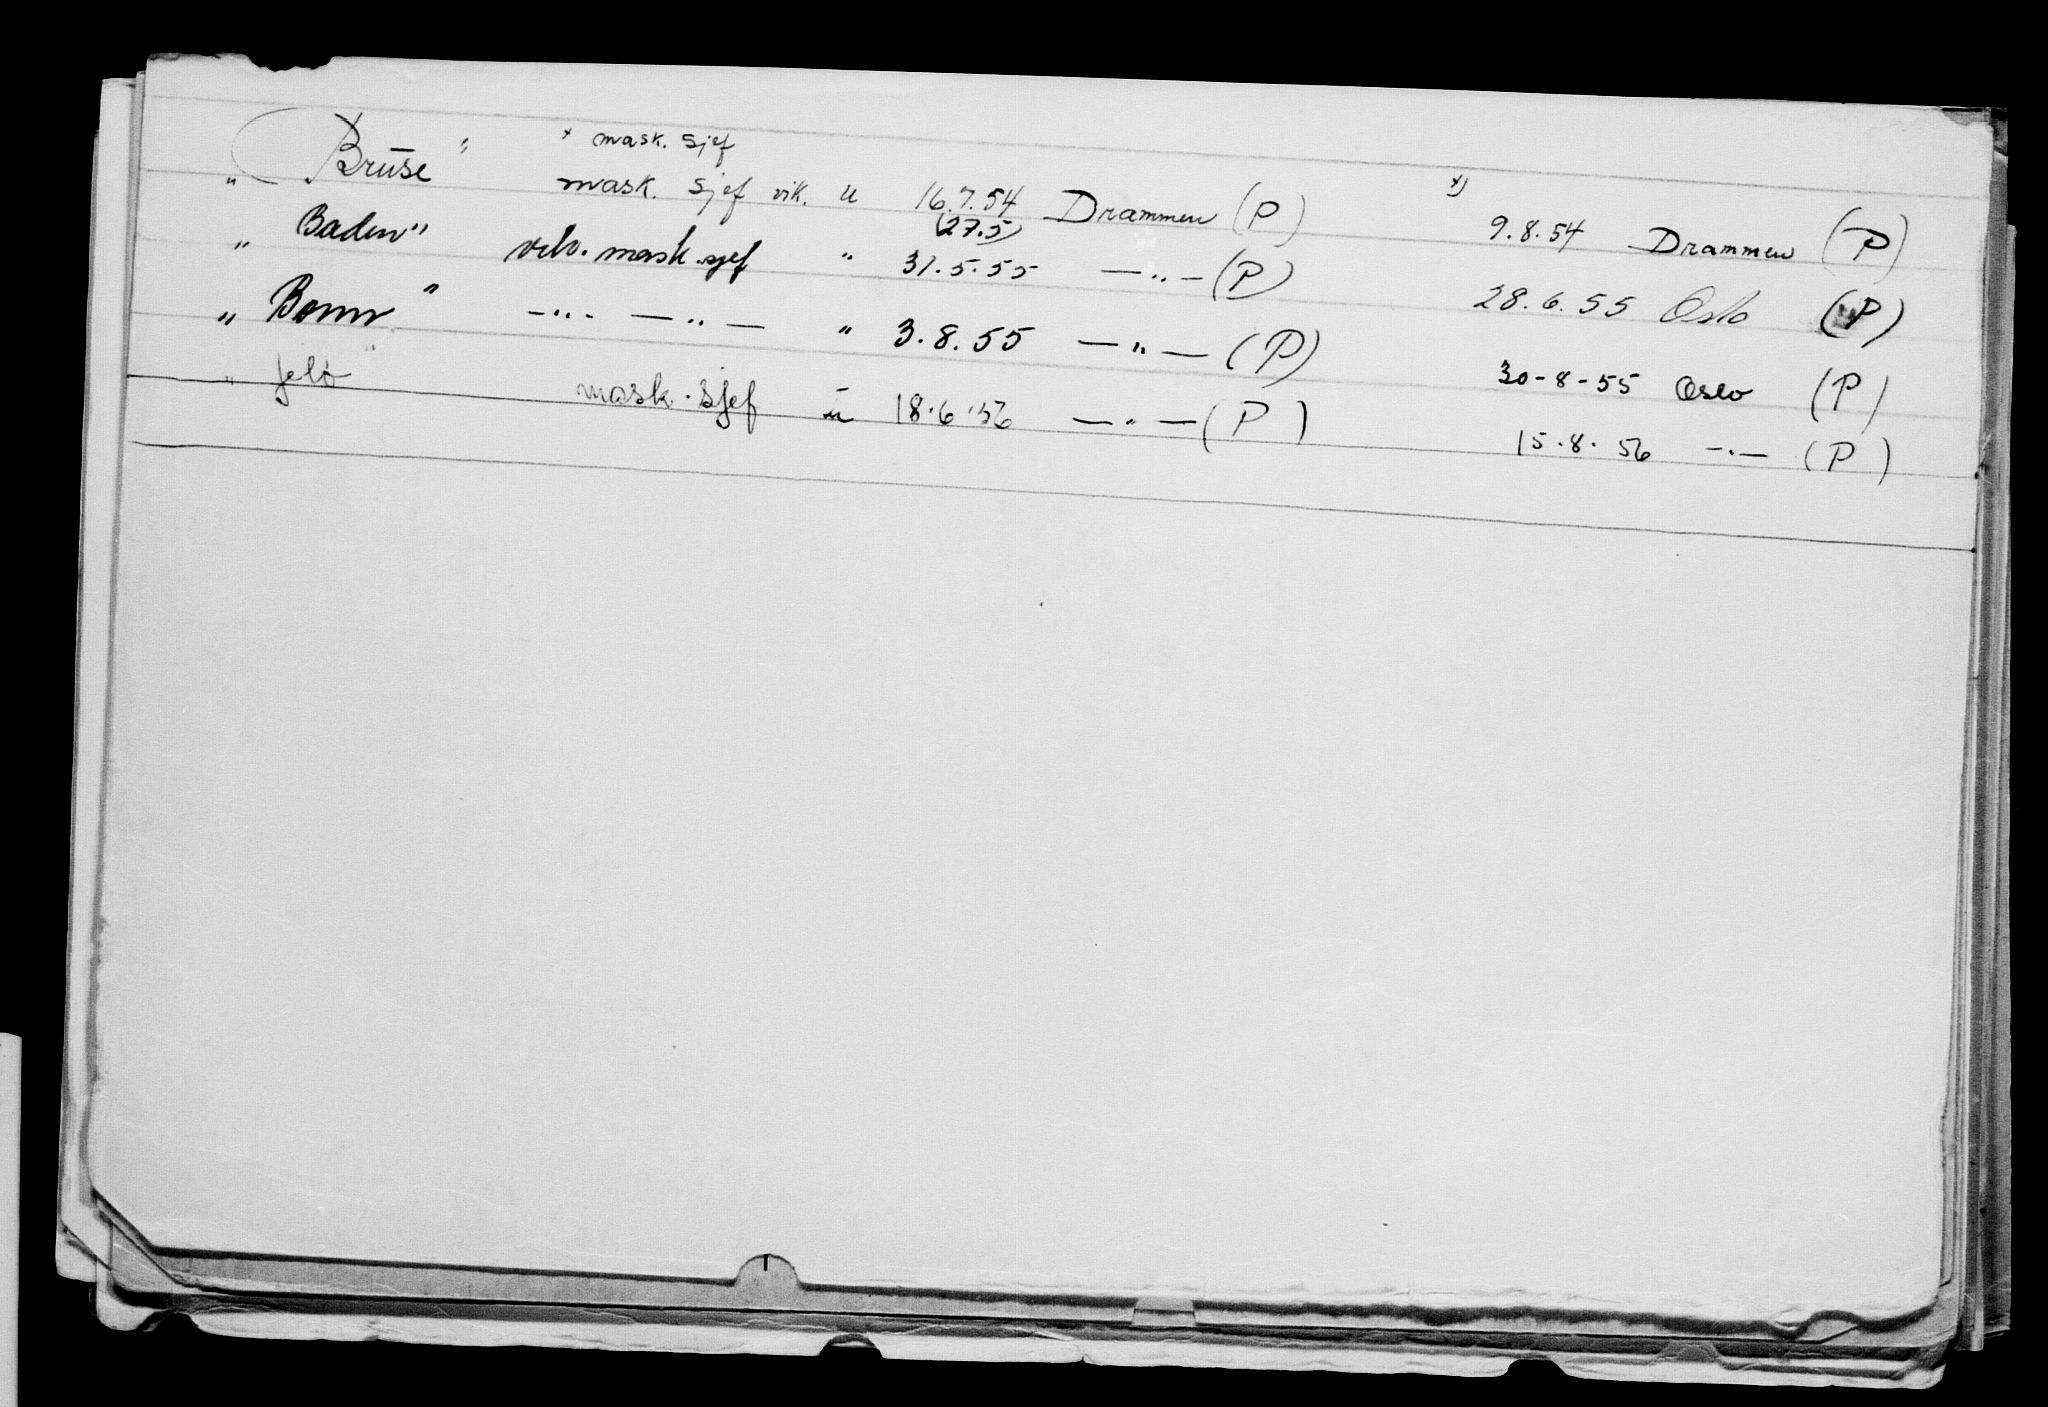 x mask. sjef
" Bruse " mask. sjef vik. u 16.7.54 Drammen (P) x) 9.8.54 Drammen (P)
(27.5)
" Baden" mask. sjef " 31.5.55 — " — (P) 28.6.55 Oslo (P)
" Bonn " — " — — " — " 3.8.55 — " — (P) 30-8-55 Oslo (P)
" Jelø " mask. sjef u 18.6.56 — " — (P) 15.8.56 — " — (P)